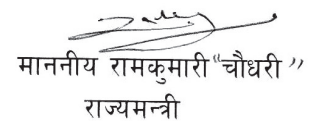 माननीय रामकुमारी "चौधरी"
राज्यमन्त्री